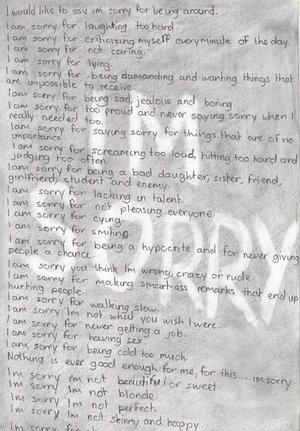 I would like to say im sorry for being around.
I am sorry for laughing too hard.
I am sorry for criticizing myself every minute of the day.
I am sorry for not caring.
I am sorry for lying.
I am sorry for being damanding and wanting things that
are impossible to receive.
I am sorry for being sad, jealous and boring.
I am sorry for too proud and never saying sorry when I
really needed too.
I am sorry for saying sorry for things that are of no
importance.
I am sorry for screaming too loud, hitting too hard and
judging too often.
I am sorry for being a bad daughter, sister, friend,
girlfriend, student and enemy.
I am sorry for lacking in talent.
I am sorry for not pleasing everyone.
I am sorry for crying.
I am sorry for smiling.
I am sorry for being a hypocrite and for never giving
people a chance.
I am sorry you think Im wrong, crazy or rude.
I am sorry for making smart-ass remarks that end up
hurting people.
I am sorry for walking slow.
I am sorry Im not what you wish I were.
I am sorry for never getting a job.
I am sorry for having sex.
I am sorry for being cold too much.
Nothing is ever good enough for me, for this.....im sorry
Im sorry Im not beautiful or sweet.
Im sorry Im not blonde.
Im sorry Im not perfect.
Im sorry Im not skinny and happy.
Im sorry for
IM
SORRY